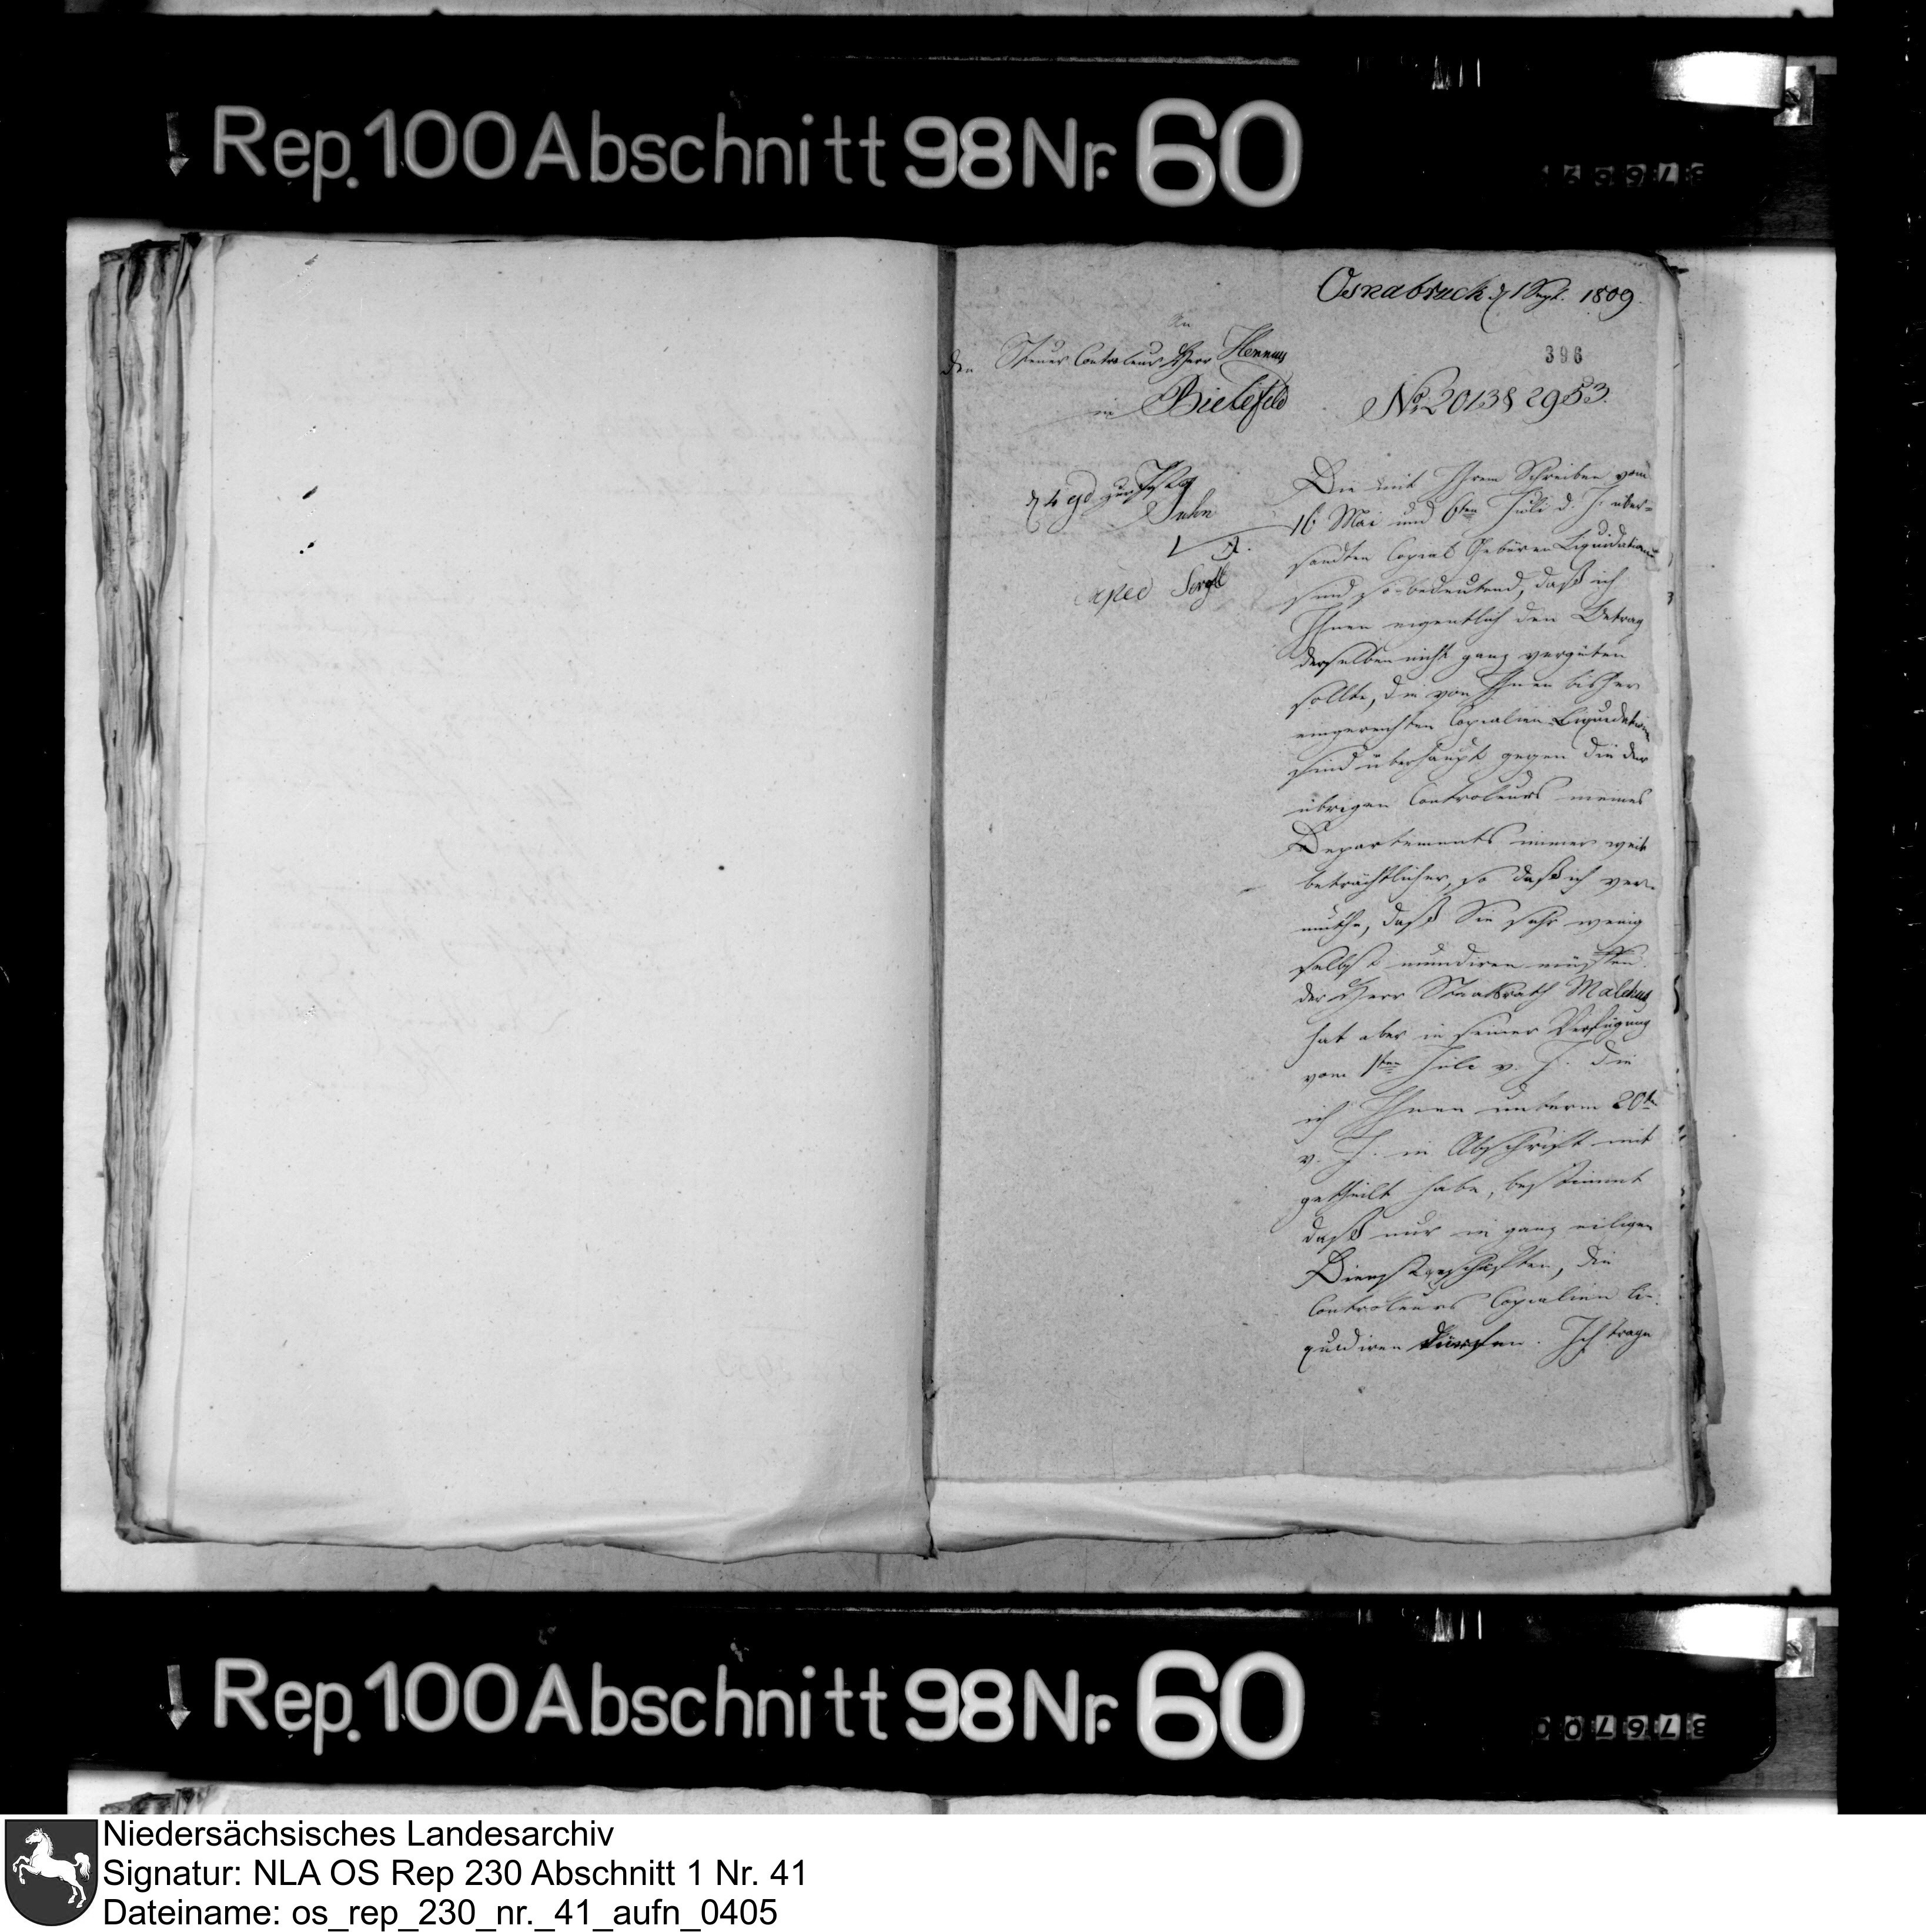 Rep. 100 Abschnitt 98 Nr. 60
Osnabruck d 1 Sept. 1809.
396
An
den Steuer Controleur Herr Hennus
in Bielefeld
No 20138 2953.
Sehn
exped
Die mit Ihrem Schreiben vom
16 Mai und 6ten Juli d. J. über-
sandten Copial Gebüren Liquidationen
sind so bedeutend, daß ich
Ihnen eigentlich den Betrag
derselben nicht ganz vergüten
sollte, die von Ihnen bisher
eingereichten Copialien Liquidationen
sind überhaupt gegen die der
übrigen Controleurs meines
Departements immer weit
beträchtlicher, so daß ich ver-
muthe, daß Sie sehr wenig
selbst mundiren müssen.
der Herr Staatsrath Malchus
hat aber in seiner Verfügung
vom 1ten Juli v. J. die
ich Ihnen unterm 20ten
v. J. in Abschrift mit
getheilt habe, bestimmt
daß nur in ganz eiligen
Dienstgeschäften, die
Controleurs Copialien li-
quidiren dürfen. Ich trage
Rep. 100 Abschnitt 98 Nr. 60
Niedersächsisches Landesarchiv
Signatur: NLA OS Rep 230 Abschnitt 1 Nr. 41
Dateiname: os_rep_230_nr._41_aufn_0405